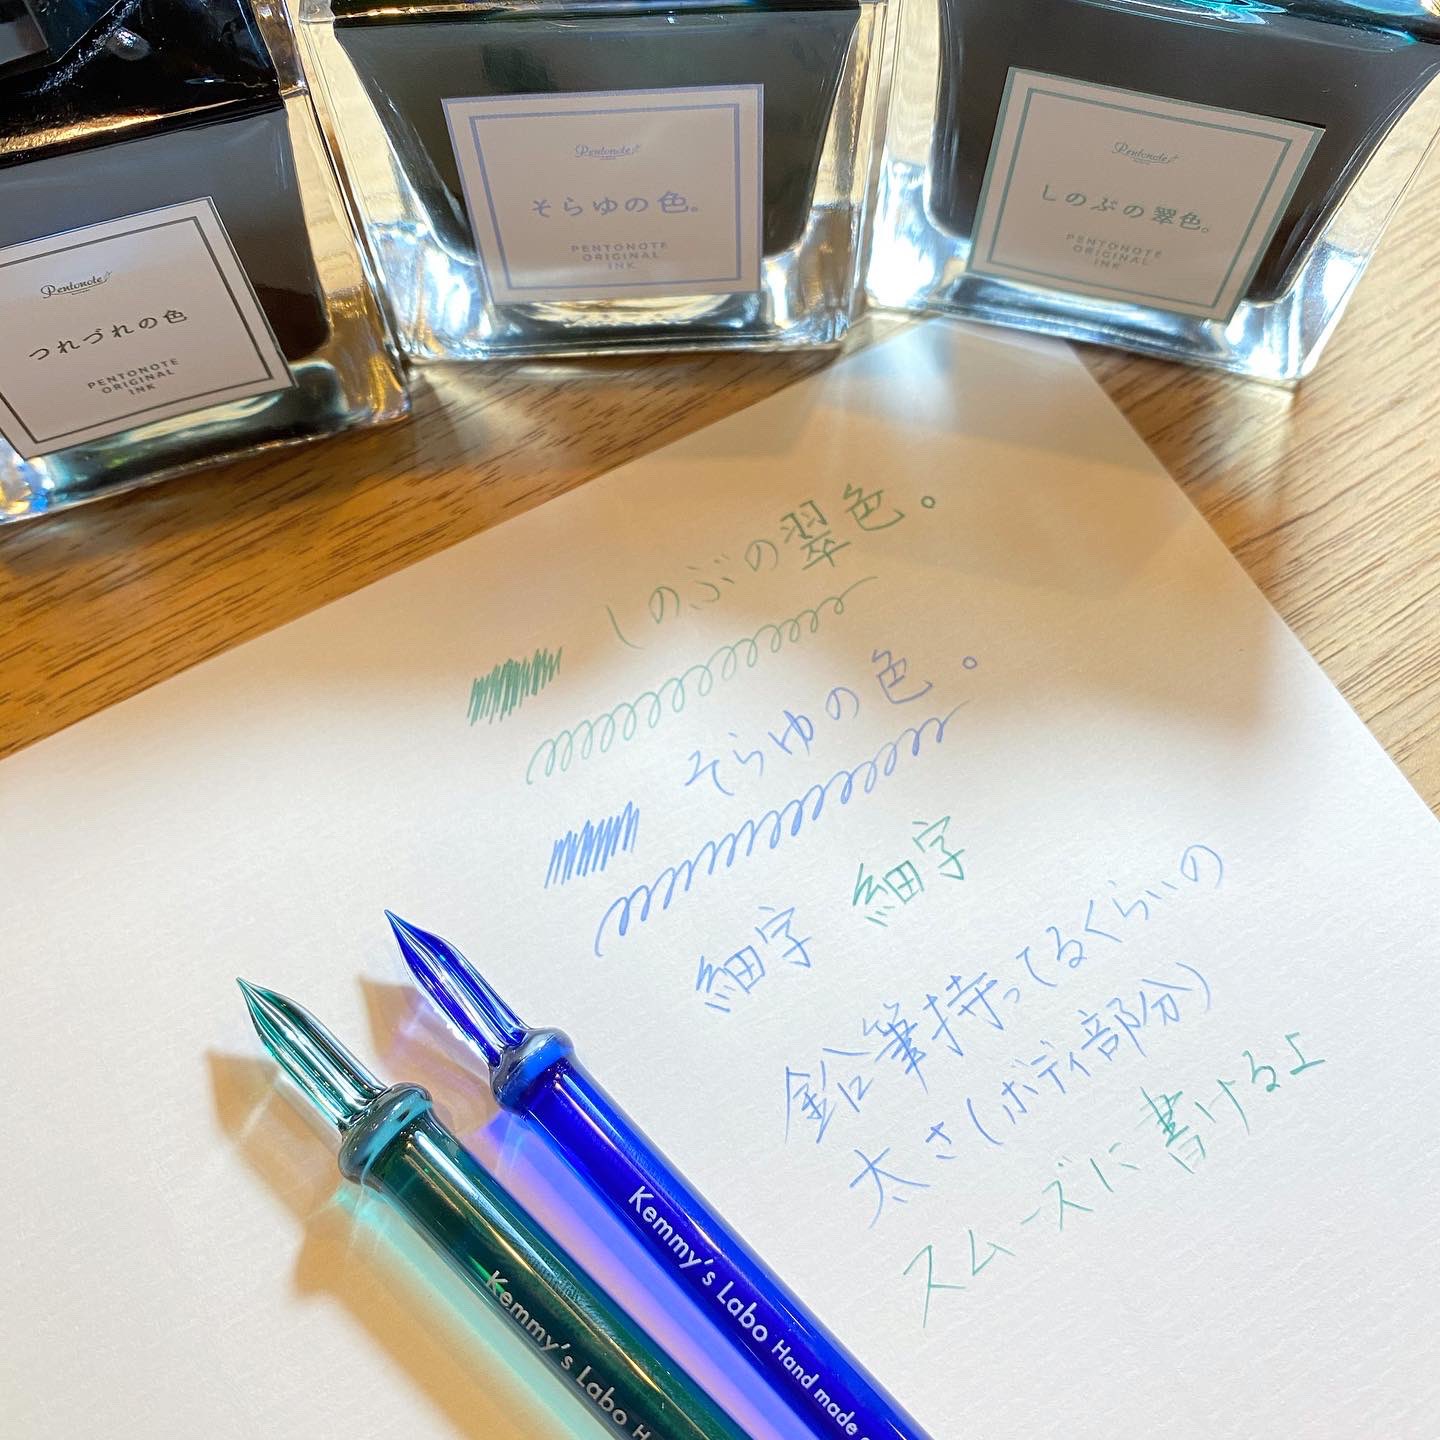 Pentonote
つれづれの色
PENTONOTE
ORIGINAL
INK
Pentonote
そらゆの色。
PENTONOTE
ORIGINAL
INK
Pentonote
しのぶの翠色。
PENTONOTE
ORIGINAL
INK
しのぶの翠色。
そらゆの色。
細字 細字
鉛筆持ってるくらいの
太さ(ボディ部分)
スムーズに書けるよ
Kemmy's Labo Hand made
Kemmy's Labo H